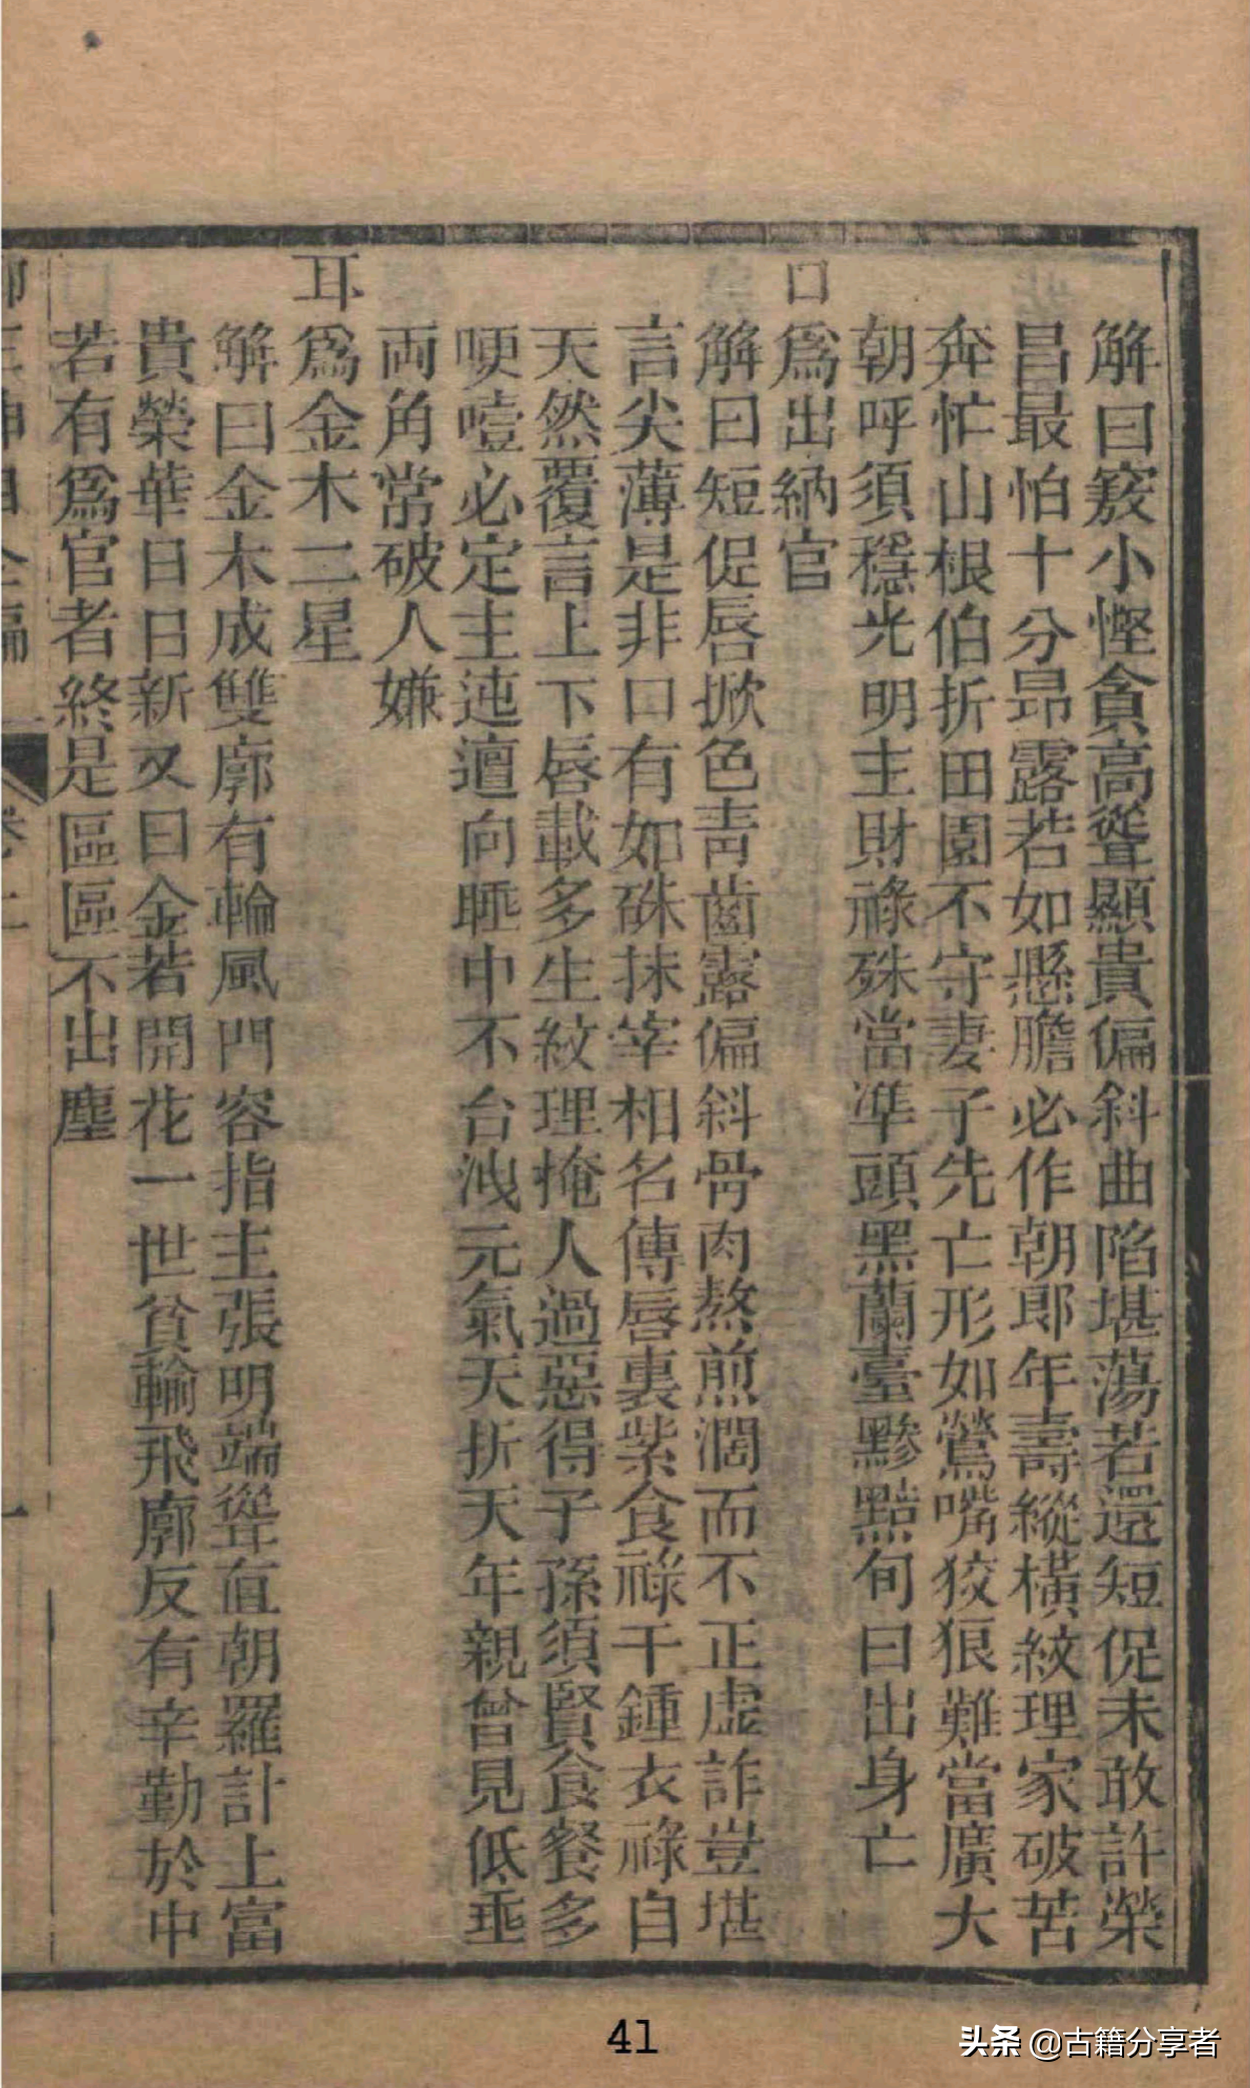 解曰竅小慳貪高聳顯貴偏斜曲陷堪蕩若還短促未敢許榮
昌最怕十分昂露若如懸膽必作朝郎年壽縱橫紋理家破苦
奔忙山根伯折田園不守妻子先亡形如鶯嘴狡狠難當廣大
朝呼須穩光明主財祿殊當準頭黑蘭臺黲黯旬日出身亡
口爲出納官
解曰短促唇掀色青齒露偏斜骨肉熬煎濶而不正虛詐豈堪
言尖薄是非口有如硃抹宰相名傳唇裏紫食祿千鍾衣祿自
天然覆言上下唇載多生紋理掩人過惡得子孫須賢食餐多
哽噎必定主迍邅向睡中不台洩元氣夭折天年親曾見低垂
两角常破人嫌
耳爲金木二星
解曰金木成雙廓有輪風門容指主張明端聳直朝羅計上富
貴榮華日日新又曰金若開花一世貧輪飛廓反有辛勤於中
若有爲官者終是區區不出塵
41
头条 @古籍分享者